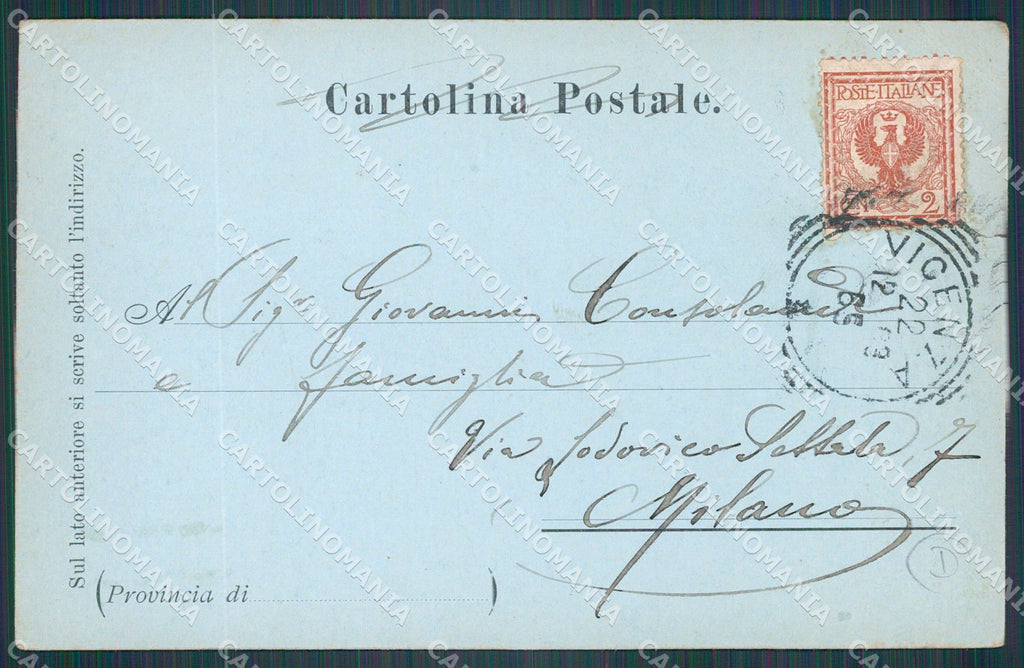 Cartolina Postale.
POSTE·ITALIANE
2
VICENZA
22
12
Al Sig. Giovanni Consolandi
e famiglia
Via Lodovico Settala 7
Milano
(Provincia di )
Sul lato anteriore si scrive soltanto l'indirizzo.
CARTOLINOMANIA